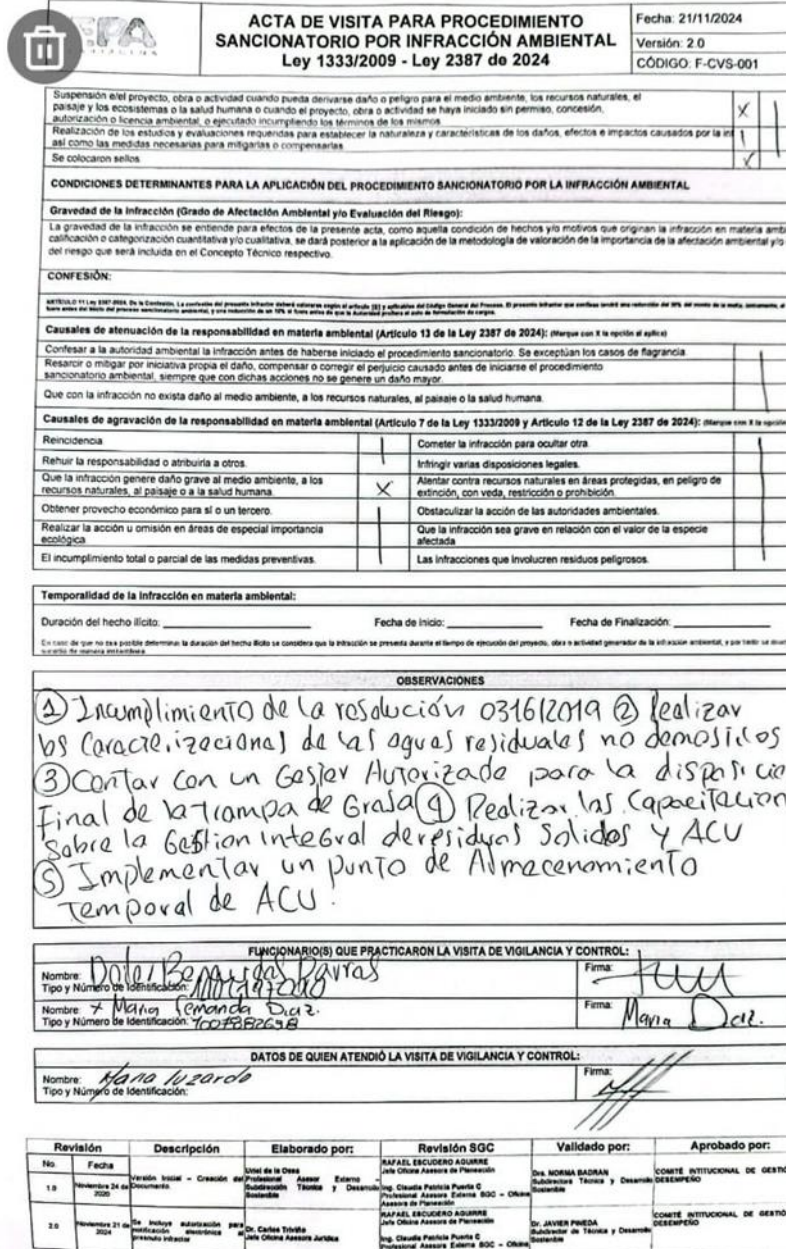 EPA
ACTA DE VISITA PARA PROCEDIMIENTO
SANCIONATORIO POR INFRACCIÓN AMBIENTAL
Ley 1333/2009 - Ley 2387 de 2024
Fecha: 21/11/2024
Versión: 2.0
CÓDIGO: F-CVS-001
Suspensión e/el proyecto, obra o actividad cuando pueda derivarse daño o peligro para el medio ambiente, los recursos naturales, el
paisaje y los ecosistemas o la salud humana o cuando el proyecto, obra o actividad se haya iniciado sin permiso, concesión,
autorización o licencia ambiental, o ejecutado incumpliendo los términos de los mismos.
X
Realización de los estudios y evaluaciones requeridas para establecer la naturaleza y características de los daños, efectos e impactos causados por la
así como las medidas necesarias para mitigarlas o compensarlas
Se colocaron sellos
X
CONDICIONES DETERMINANTES PARA LA APLICACIÓN DEL PROCEDIMIENTO SANCIONATORIO POR LA INFRACCIÓN AMBIENTAL
Gravedad de la infracción (Grado de Afectación Ambiental y/o Evaluación del Riesgo):
La gravedad de la infracción se entiende para efectos de la presente acta, como aquella condición de hechos y/o motivos que originan la infracción en materia
calificación o categorización cuantitativa y/o cualitativa, se dará posterior a la aplicación de la metodología de valoración de la importancia de la afectación ambiental y/o
del riesgo que será incluida en el Concepto Técnico respectivo.
CONFESIÓN:
Causales de atenuación de la responsabilidad en materia ambiental (Artículo 13 de la Ley 2387 de 2024): (Marque con X la opción si aplica)
Confesar a la autoridad ambiental la infracción antes de haberse iniciado el procedimiento sancionatorio. Se exceptúan los casos de flagrancia.
Resarcir o mitigar por iniciativa propia el daño, compensar o corregir el perjuicio causado antes de iniciarse el procedimiento
sancionatorio ambiental, siempre que con dichas acciones no se genere un daño mayor.
Que con la infracción no exista daño al medio ambiente, a los recursos naturales, al paisaje o la salud humana.
Causales de agravación de la responsabilidad en materia ambiental (Artículo 7 de la Ley 1333/2009 y Artículo 12 de la Ley 2387 de 2024): (Marque con X la opción
Reincidencia
Cometer la infracción para ocultar otra.
Rehuir la responsabilidad o atribuirla a otros.
Infringir varias disposiciones legales.
Que la infracción genere daño grave al medio ambiente, a los
recursos naturales, al paisaje o a la salud humana.
X
Atentar contra recursos naturales en áreas protegidas, en peligro de
extinción, con veda, restricción o prohibición.
Obtener provecho económico para sí o un tercero.
Obstaculizar la acción de las autoridades ambientales.
Realizar la acción u omisión en áreas de especial importancia
ecológica
Que la infracción sea grave en relación con el valor de la especie
afectada
El incumplimiento total o parcial de las medidas preventivas.
Las infracciones que involucren residuos peligrosos.
Temporalidad de la infracción en materia ambiental:
Duración del hecho ilícito:
Fecha de inicio:
Fecha de Finalización:
En caso de que no sea posible determinar la duración del hecho ilícito se considera que la infracción se presenta durante el tiempo de ejecución del proyecto, obra o actividad generador de la infracción ambiental, y por tanto se
OBSERVACIONES
① Incumplimiento de la resolución 0316/2019 ② Realizar
los Caracterizacional de las aguas residuales no domosticos
③ Contar con un Gestor Autorizado para la disposicio
Final de la trampa de Grasa ④ Realizar las Capacitacion
Sobre la Gestion integral de residuos Solidos y ACU
⑤ Implementar un punto de Almacenamiento
Temporal de ACU.
FUNCIONARIO(S) QUE PRACTICARON LA VISITA DE VIGILANCIA Y CONTROL:
Nombre:
Tipo y Número de Identificación:
Firma:
Nombre: Maria Fernanda Diaz.
Tipo y Número de Identificación: 1007882698
Firma: Maria Diaz.
DATOS DE QUIEN ATENDIÓ LA VISITA DE VIGILANCIA Y CONTROL:
Nombre: Maria luzardo
Tipo y Número de Identificación:
Firma:
Revisión Descripción Elaborado por: Revisión SGC Validado por: Aprobado por:
No. Fecha
1.0 Noviembre 24 de 2020
Versión Inicial – Creación del Documento.
Uriel de la Ossa
Profesional Asesor Externo – Subdirección Técnica y Desarrollo Sostenible
RAFAEL ESCUDERO AGUIRRE
Jefe Oficina Asesora de Planeación
Ing. Claudia Patricia Puerta C
Profesional Asesora Externa SGC – Oficina Asesora de Planeación
Dra. NORMA BADRAN
Subdirectora Técnica y Desarrollo Sostenible
COMITÉ INTITUCIONAL DE GESTIÓ
DESEMPEÑO
2.0 Noviembre 21 de 2024
Se incluye autorización para notificación electrónica al presunto infractor
Dr. Carlos Triviño
Jefe Oficina Asesora Jurídica
RAFAEL ESCUDERO AGUIRRE
Jefe Oficina Asesora de Planeación
Ing. Claudia Patricia Puerta C
Profesional Asesora Externa SGC – Oficina
Dr. JAVIER PINEDA
Subdirector de Técnica y Desarrollo Sostenible
COMITÉ INTITUCIONAL DE GESTIÓ
DESEMPEÑO